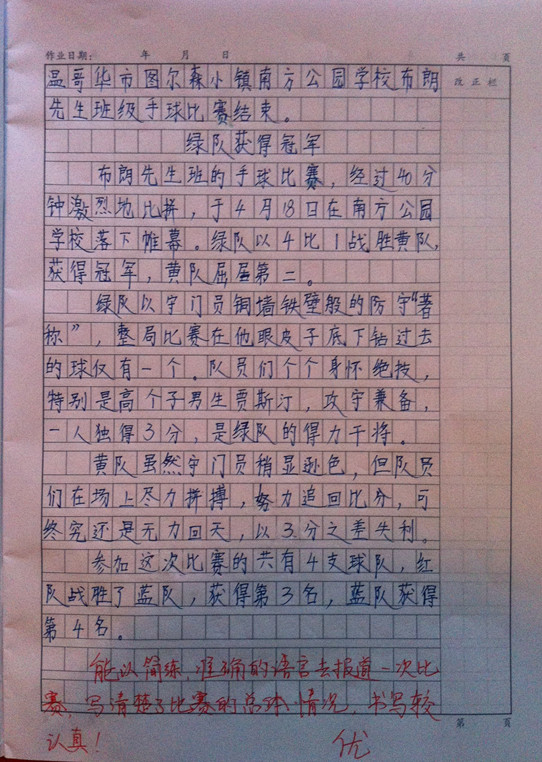 作业日期： 年 月 日 共 页
温哥华市图尔森小镇南方公园学校布朗 改正栏
先生班级手球比赛结束。
绿队获得冠军
布朗先生班的手球比赛，经过40分
钟激烈地比拼，于4月18日在南方公园
学校落下帷幕。绿队以4比1战胜黄队，
获得冠军，黄队屈居第二。
绿队以守门员铜墙铁壁般的防守“著
称”，整局比赛在他眼皮子底下钻过去
的球仅有一个。队员们个个身怀绝技，
特别是高个子男生贾斯汀，攻守兼备，
一人独得3分，是绿队的得力干将。
黄队虽然守门员稍显逊色，但队员
们在场上尽力拼搏，努力追回比分，可
终究还是无力回天，以3分之差失利。
参加这次比赛的共有4支球队，红
队战胜了蓝队，获得第3名，蓝队获得
第4名。
能以简练，准确的语言去报道一次比
赛，写清楚了比赛的总体情况，书写较
第 页
认真！ 优